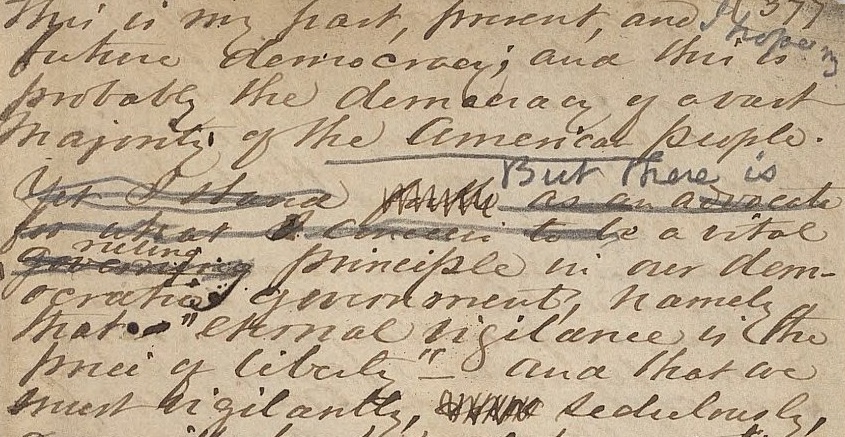 This is my past, present, and 377
I hope my
future democracy; and this is
probably the democracy of a vast
majority of the American people.
But there is
Yet I stand as an advocate
for what I conceive to be a vital
ruling
governing principle in our dem-
ocratic government, namely,
that "eternal vigilance is the
price of liberty" — and that we
must vigilantly, sedulously,